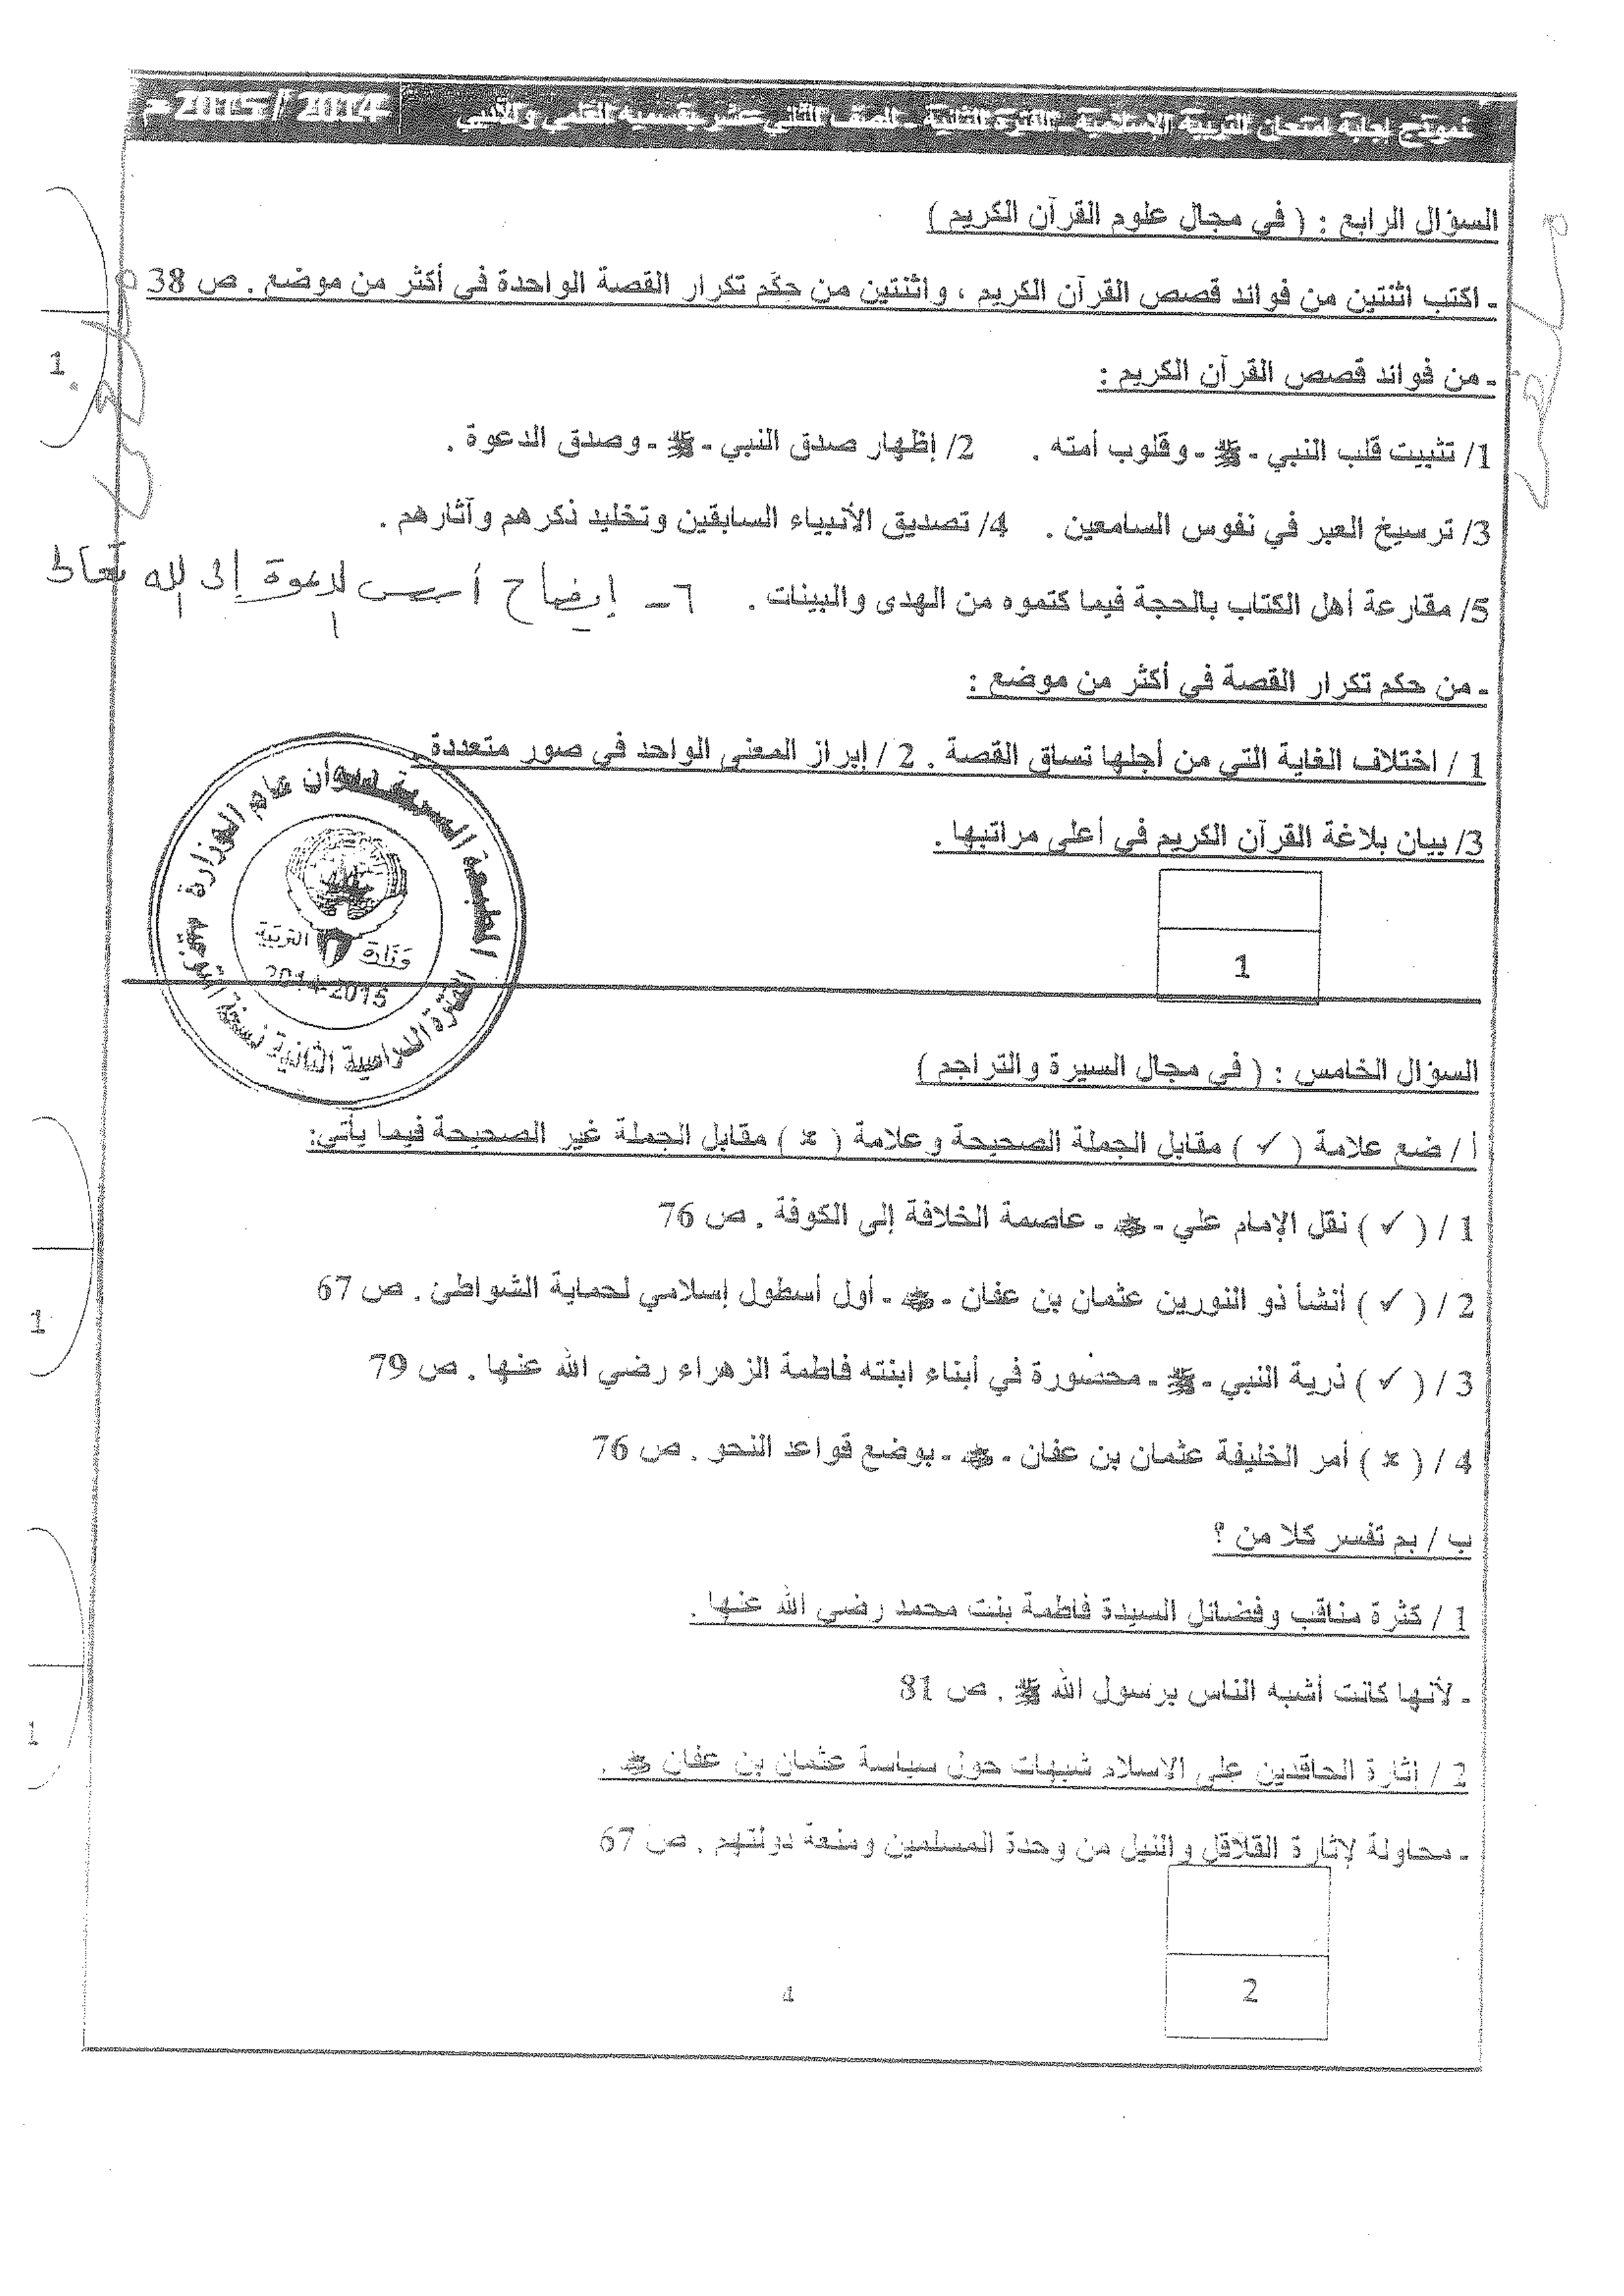 نموذج إجابة امتحان التربية الإسلامية - الفترة الثانية - للصف الثاني عشر بقسميه العلمي والأدبي 2014 // 2015 م
السؤال الرابع : ( في مجال علوم القرآن الكريم )
- اكتب اثنتين من فوائد قصص القرآن الكريم ، واثنتين من حِكَم تكرار القصة الواحدة في أكثر من موضع . ص 38
1
- من فوائد قصص القرآن الكريم :
1/ تثبيت قلب النبي - ﷺ - وقلوب أمته . 2/ إظهار صدق النبي - ﷺ - وصدق الدعوة .
3/ ترسيخ العبر في نفوس السامعين . 4/ تصديق الأنبياء السابقين وتخليد ذكرهم وآثارهم .
5/ مقارعة أهل الكتاب بالحجة فيما كتموه من الهدى والبينات . ٦ - إيضاح أسس الدعوة إلى الله تعالى
- من حكم تكرار القصة في أكثر من موضع :
1 / اختلاف الغاية التي من أجلها تساق القصة . 2 / إبراز المعنى الواحد في صور متعددة .
3/ بيان بلاغة القرآن الكريم في أعلى مراتبها .
المطبعة السرية ديوان عام الوزارة
وزارة التربية
2014-2015
الفترة الدراسية الثانية
1
السؤال الخامس : ( في مجال السيرة والتراجم )
أ / ضع علامة ( ✓ ) مقابل الجملة الصحيحة وعلامة ( × ) مقابل الجملة غير الصحيحة فيما يأتي:
1 / ( ✓ ) نقل الإمام علي - رضي الله عنه - عاصمة الخلافة إلى الكوفة . ص 76
2 / ( ✓ ) أنشأ ذو النورين عثمان بن عفان - رضي الله عنه - أول أسطول إسلامي لحماية الشواطئ . ص 67
1
3 / ( ✓ ) ذرية النبي - ﷺ - محصورة في أبناء ابنته فاطمة الزهراء رضي الله عنها . ص 79
4 / ( × ) أمر الخليفة عثمان بن عفان - رضي الله عنه - بوضع قواعد النحو . ص 76
ب / بم تفسر كلا من ؟
1 / كثرة مناقب وفضائل السيدة فاطمة بنت محمد رضي الله عنها .
- لأنها كانت أشبه الناس برسول الله ﷺ . ص 81
1
2 / إثارة الحاقدين على الاسلام شبهات حول سياسة عثمان بن عفان رضي الله عنه .
- محاولة لإثارة القلاقل والنيل من وحدة المسلمين ومنعة دولتهم . ص 67
2
4